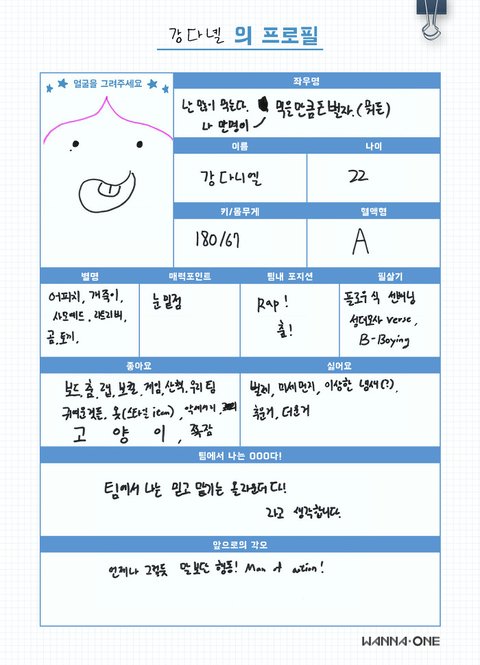 강다넬 의 프로필
얼굴을 그려주세요
좌우명
난 많이 먹는다. 먹을만큼 돈 벌자. (뭐든)
나 만명이
이름
나이
강다니엘
22
키/몸무게
혈액형
180/67
A
별명
매력포인트
팀내 포지션
필살기
어피치, 개죽이,
사모예드, 래트리버,
곰, 토끼,
눈밑점
Rap!
춤!
플로우식 선배님
성대모사 verse,
B-Boying
좋아요
싫어요
보드, 춤, 랩, 보컬, 게임, 산책, 우리팀
귀여운것들, 옷(스타일 icon),
고양이, 육감
벌레, 미세먼지, 이상한 냄새(?),
추운거, 더운거
팀에서 나는 OOO다!
팀에서 나는 믿고 맡기는 올라운더다!
라고 생각합니다.
앞으로의 각오
언제나 그렇듯 말보단 행동! Man of action!
WANNA·ONE